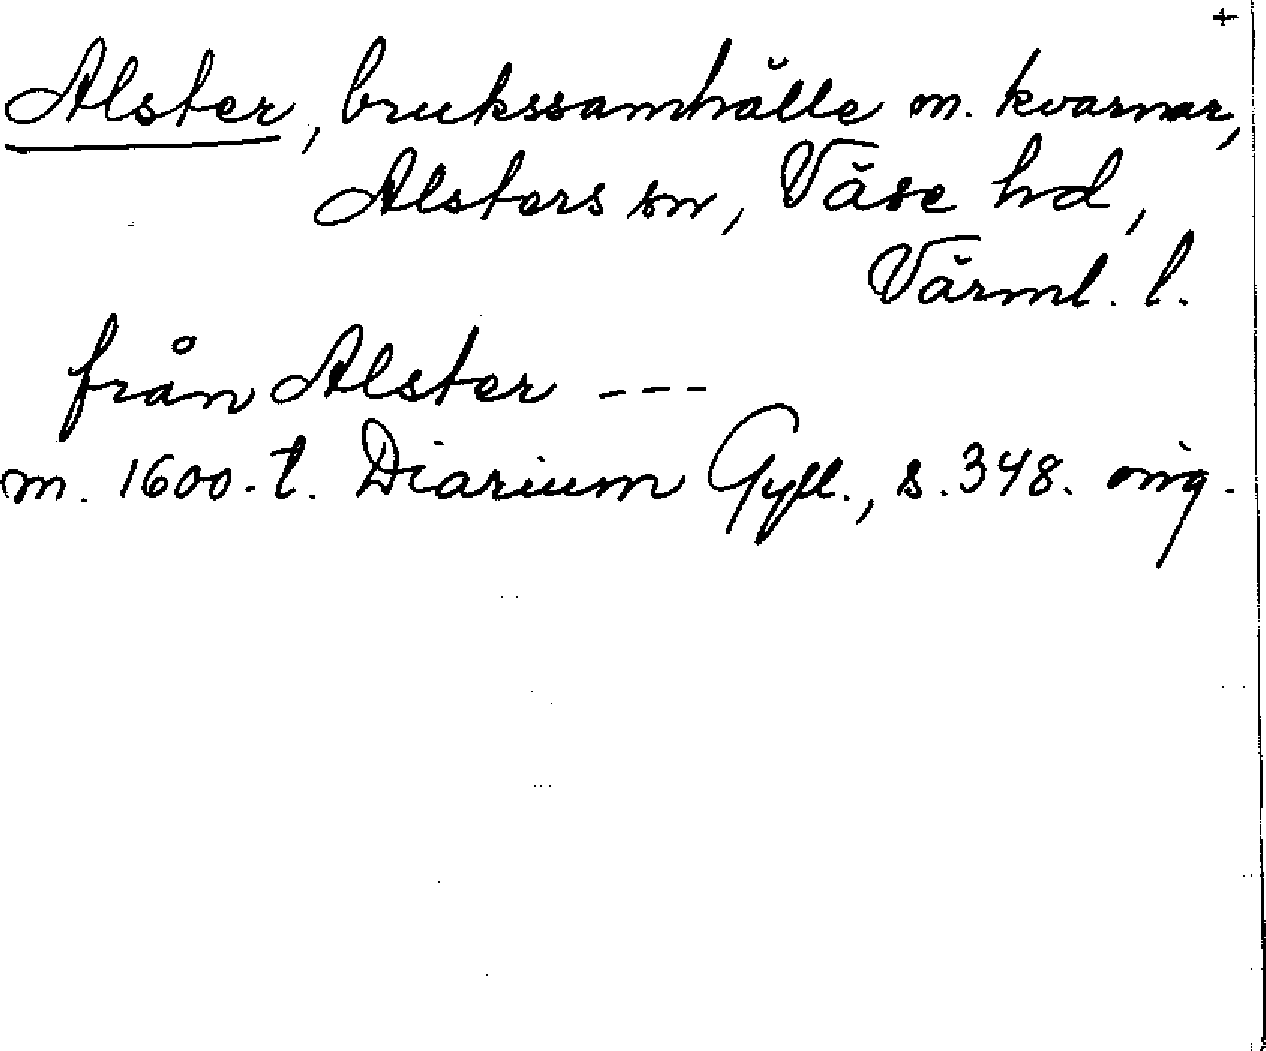 +
Alster, brukssamhälle m. kvarnar,
Alsters sn, Väse hd,
Värml. l.
från Alster ---
m. 1600-t. Diarium Gyll., s. 348. orig.